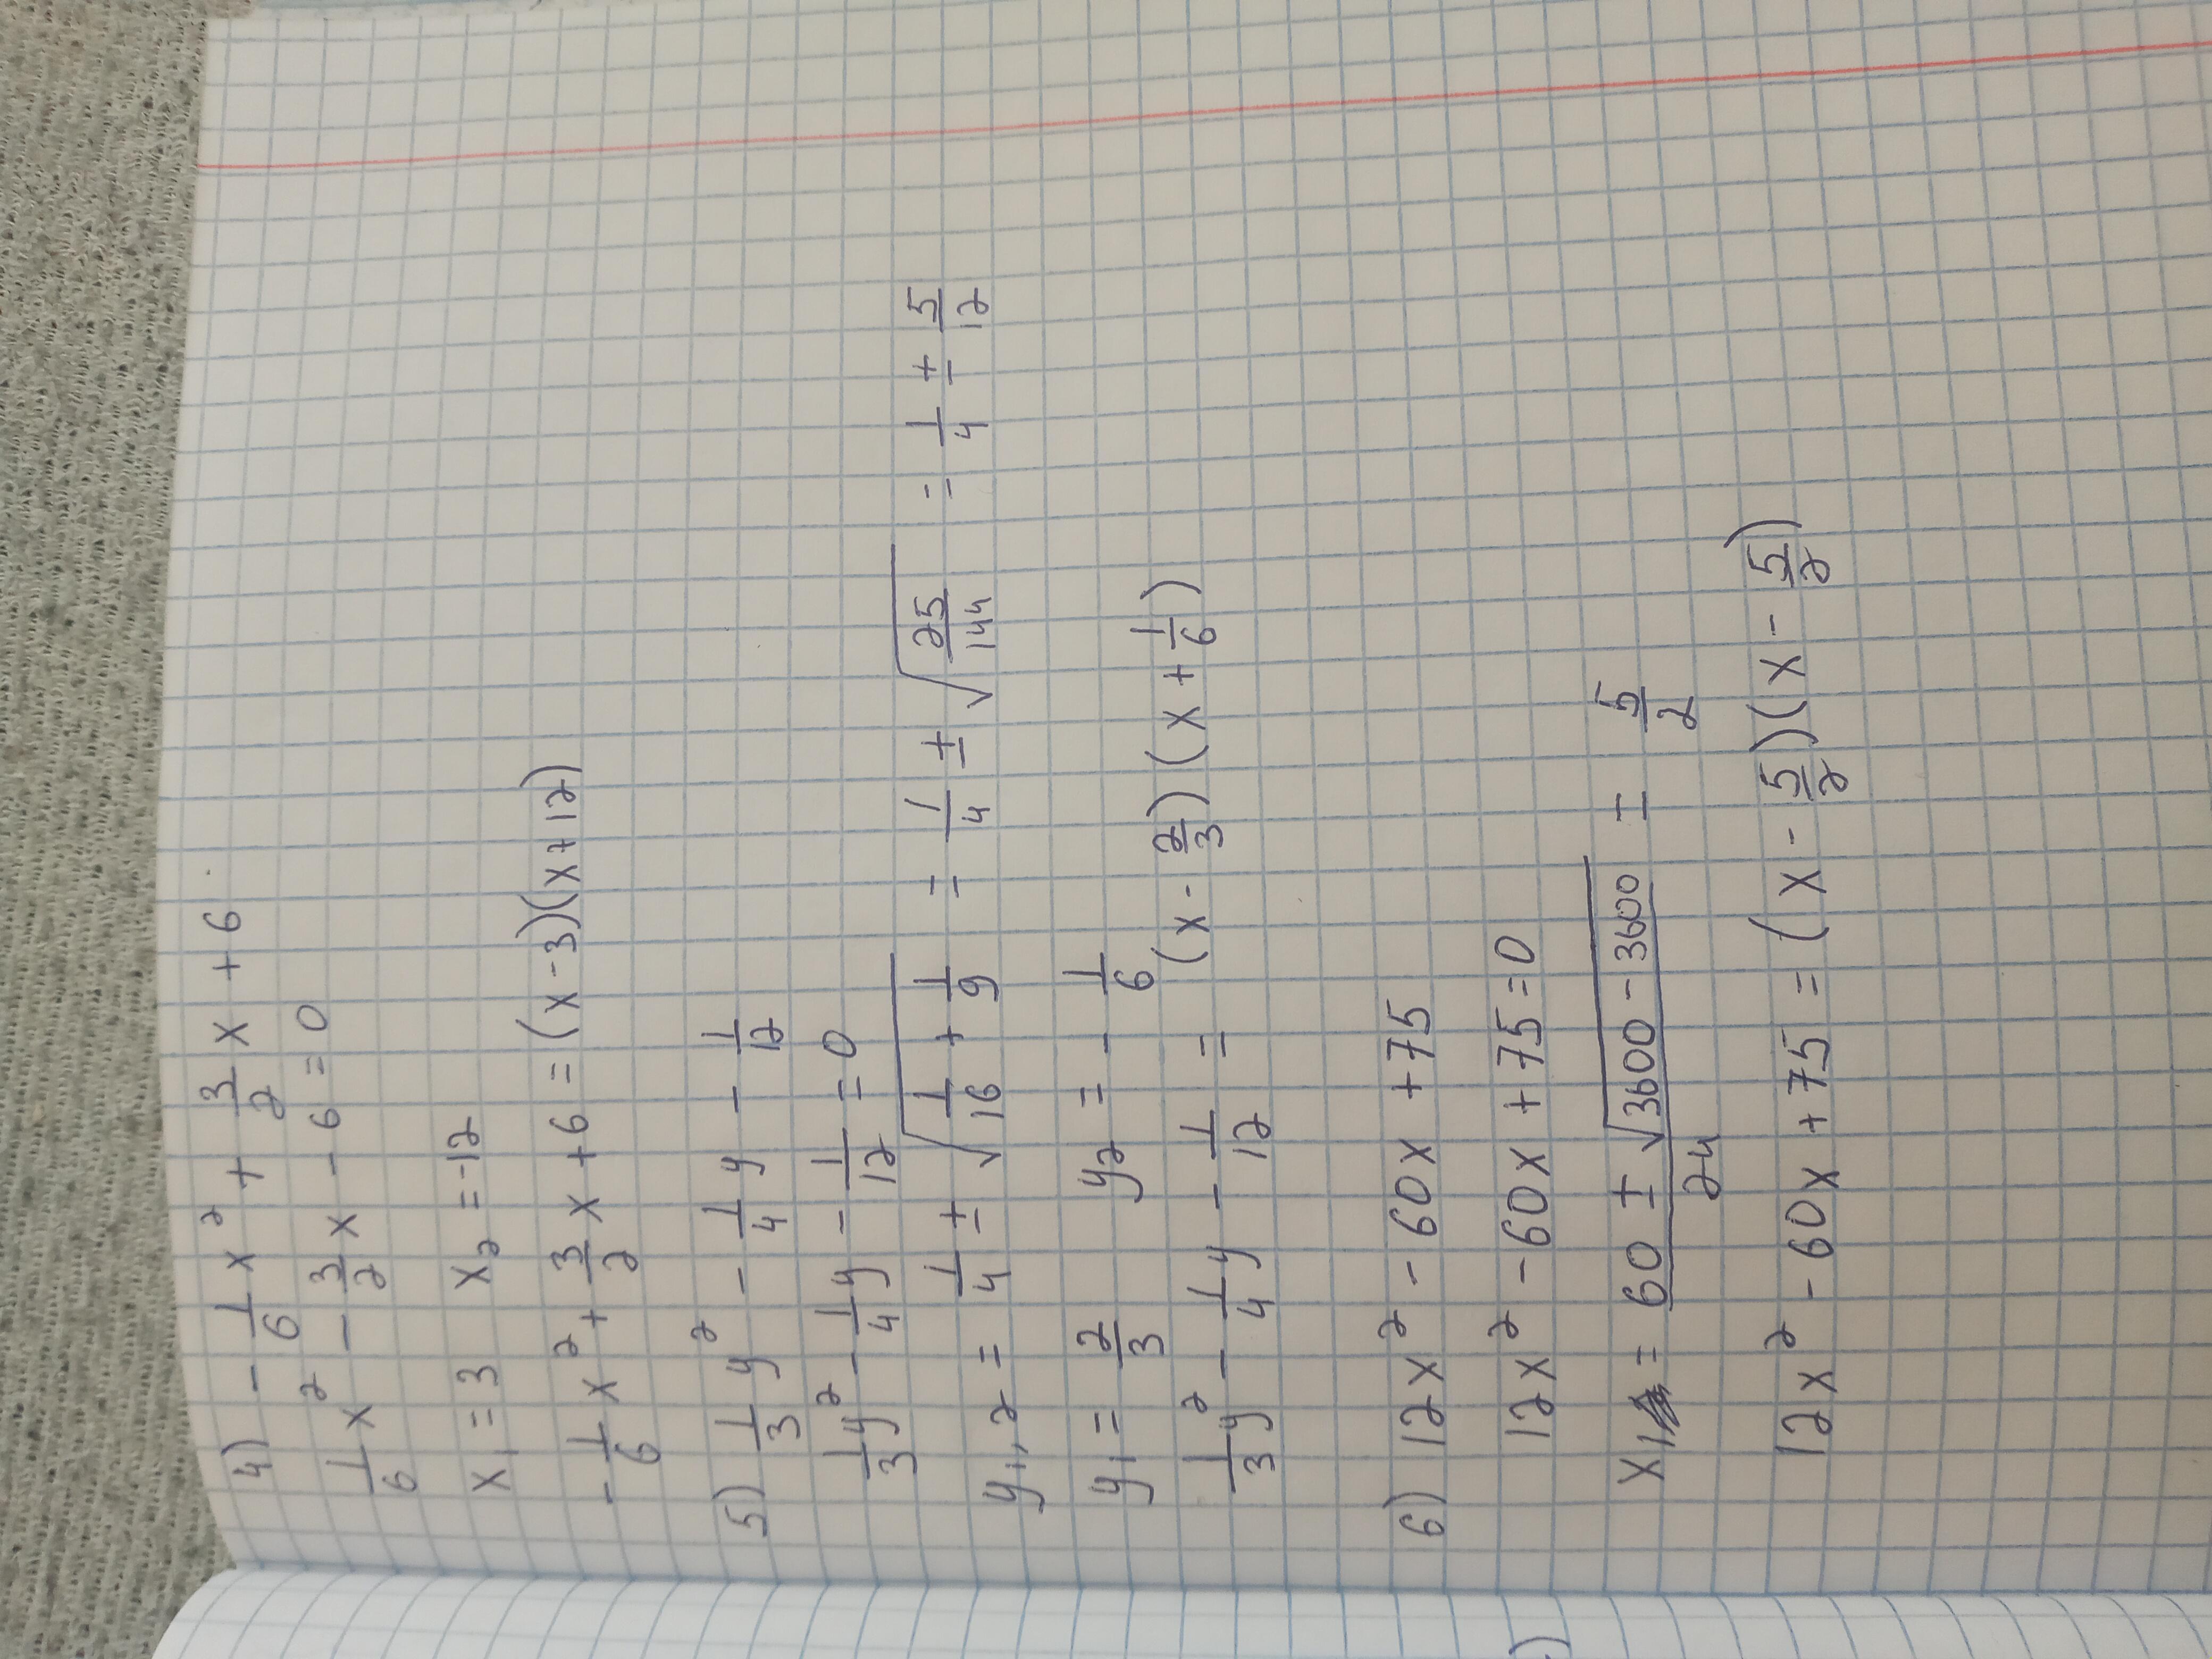 4) - 1/6 x² + 3/2 x + 6
1/6 x² - 3/2 x - 6 = 0
x₁ = 3 x₂ = -12
- 1/6 x² + 3/2 x + 6 = (x - 3)(x + 12)
5) 1/3 y² - 1/4 y - 1/12
1/3 y² - 1/4 y - 1/12 = 0
y₁,₂ = 1/4 ± √(1/16 + 1/9) = 1/4 ± √(25/144) = 1/4 ± 5/12
y₁ = 2/3 y₂ = - 1/6
1/3 y² - 1/4 y - 1/12 = (x - 2/3)(x + 1/6)
6) 12x² - 60x + 75
12x² - 60x + 75 = 0
x₁ = (60 ± √(3600 - 3600))/24 = 5/2
12x² - 60x + 75 = (x - 5/2)(x - 5/2)
)